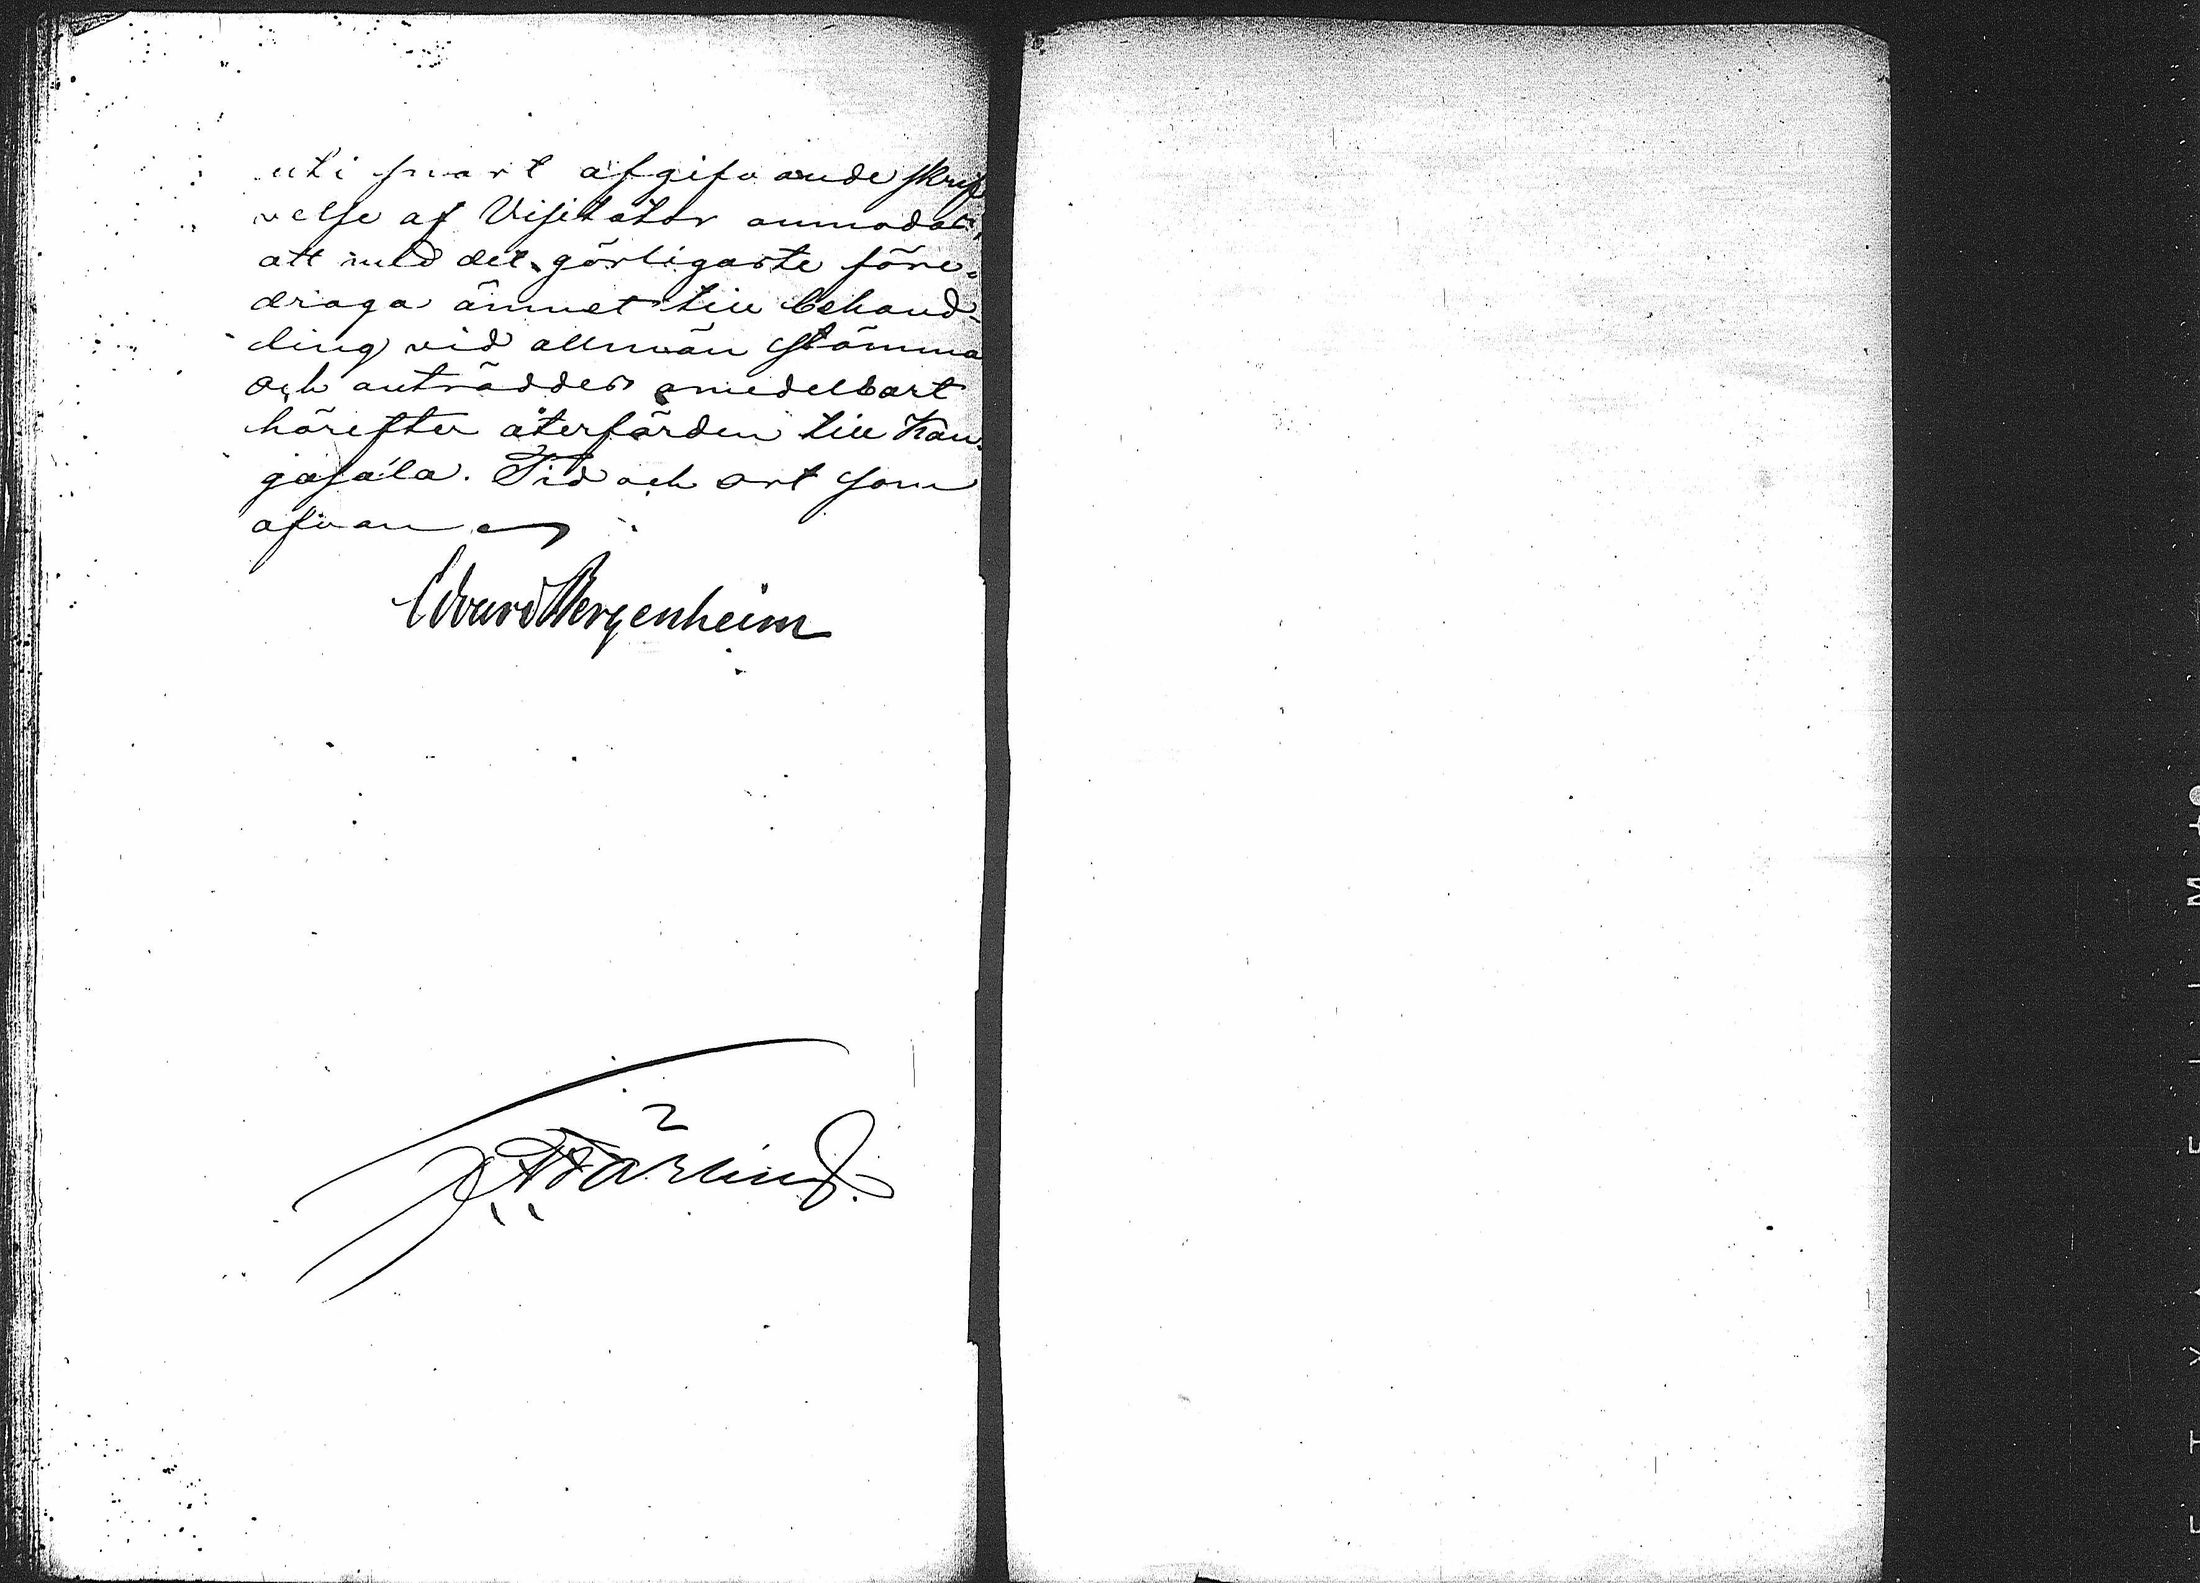 uti snart afgifvande skrif
velse af Visitator anmodas,
att med det görligaste före-
draga ämnet till behand-
ling vid allmän stämma
och anträddes omedelbart
härefter återfärden till Kan-
gasala. Tid och ort som
ofvan
Edvard Bergenheim